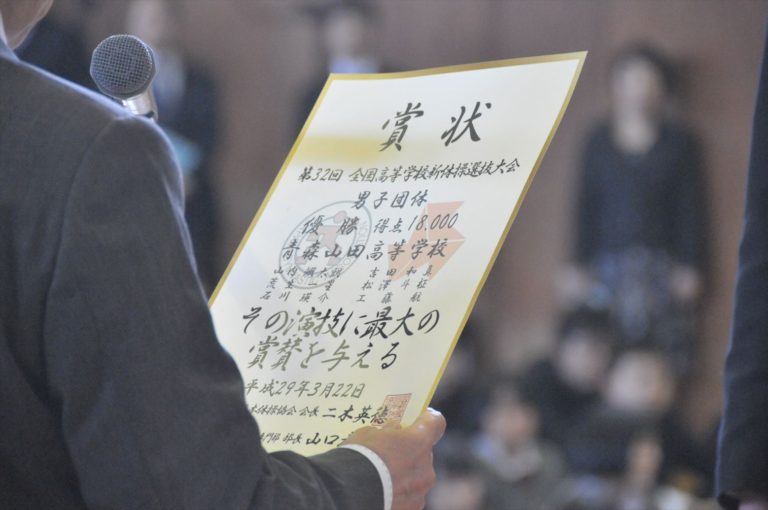 賞状
第32回 全国高等学校新体操選抜大会
男子団体
優勝 得点18.000
青森山田高等学校
吉田和真
一聖 松澤斗柾
石川瑛介 工藤航
その演技に最大の
賞賛を与える
平成29年3月22日
木体操協会 会長 二木英徳
門部 部長 山口